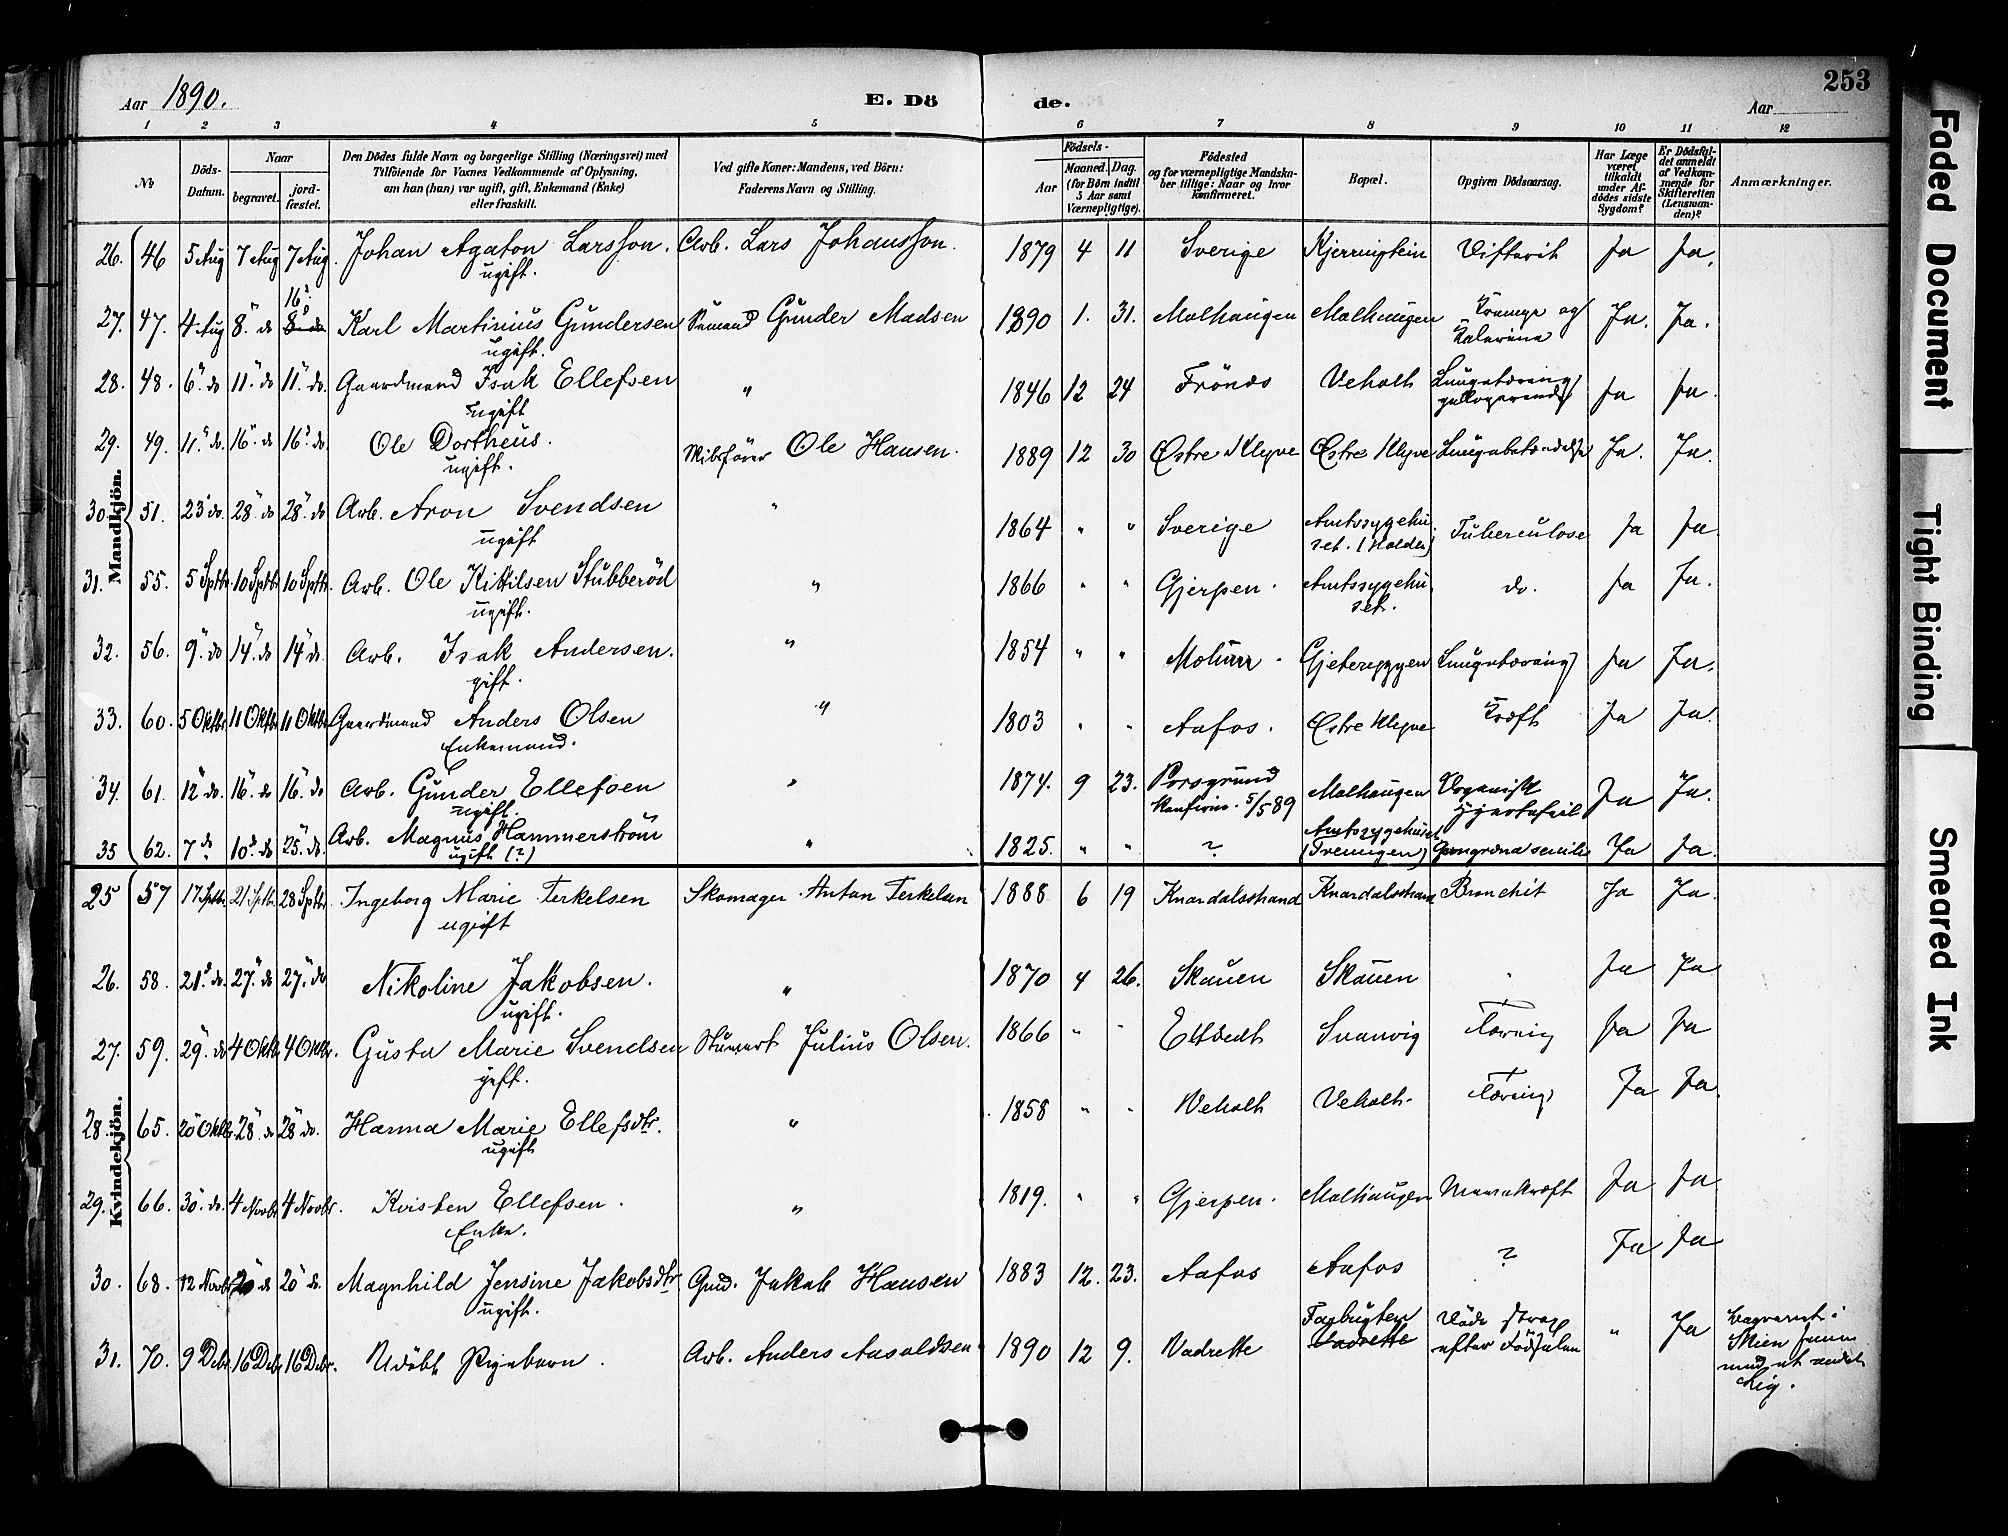 Aar 1890.
E. Döde.
Aar
253
1 2 3 4 5 6 7 8 9 10 11 12
No
Döds-Datum.
Naar
begravet.
jord-fæstet.
Den Dödes fulde Navn og borgerlige Stilling (Næringsvei) med
Tilföiende for Voxnes Vedkommende af Oplysning,
om han (hun) var ugift, gift, Enkemand (Enke)
eller fraskilt.
Ved gifte Koner: Mandens, ved Börn:
Faderens Navn og Stilling.
Födsels-
Aar
Maaned. Dag.
(for Börn indtil
5 Aar samt
Værnepligtige).
Födested
og for værnepligtige Mandska-
ber tillige: Naar og hvor
konfirmeret.
Bopæl.
Opgiven Dödsaarsag.
Har Læge
været
tilkaldt
under Af-
dödes sidste
Sygdom?
Er Dödsfal-
det anmeldt
af Vedkom-
mende for
Skifteretten
(Lensman-
den)?
Anmærkninger.
Mandkjön.
26. 46 5 Aug 7 Aug 7 Aug. Johan Agaton Larsson. Arb. Lars Johansson. 1879 4 11 Sverige Kjerringtein Ja Ja.
ugift.
16.
27. 47. 4 Aug 8. do 8 do Karl Martinius Gundersen Sømand Gunder Madsen 1890 1. 31. Molhaugen Molhaugen Krampe og Ja. Ja.
ugift.
28. 48. 6. do 11. do 11. do. Gaardmand Isak Ellefsen " 1846 12 24 Frönæs Veholt Lungetæring Ja Ja.
ugift
29. 49. 11. do. 16. do 16. do. Ole Dortheus. Skibsfører Ole Hansen. 1889 12 30 Østre Klyve Østre Klyve Lungebetændelse Ja. Ja.
ugift.
30. 51. 23 do. 28 do 28. do Arb. Aron Svendsen " 1864 " " Sverige Amtssygehu- Tuberculose Ja Ja.
ugift set. (Holden)
31. 55. 5 Sptbr 10 Sptbr 10 Sptbr. Arb. Ole Kittilsen Stubberød " 1866 " " Gjerpen. Amtssygehu- do. Ja Ja.
ugift. set.
32. 56. 9. do 14. do 14 do. Arb. Isak Andersen. " 1854 " " Molum. Gjeteryggen Lungetæring Ja Ja.
gift.
33. 60. 5 Oktbr 11 Oktbr 11 Oktbr Gaardmand Anders Olsen " 1803 " " Aafos. Østre Klyve Kræft Ja Ja.
Enkemand.
34. 61. 12 do. 16. do 16. do Arb. Gunder Ellefsen " 1874. 9 23. Porsgrund Molhaugen Organisk Ja Ja.
ugift. Konfirm. 5/5 89 Hjertefeil
35 62. 7 do 10. do 25. do. Arb. Magnus Hammerström " 1825. " " ? Amtssygehuset Gangræna senilis Ja Ja.
ugift (?)
Kvindekjön.
25 57 17 Sptbr. 21 Sptbr. 28 Sptbr. Ingeborg Marie Terkelsen Skomager Anton Terkelsen 1888 6 19 Knardalsstrand Knardalsstrand Bronchit Ja Ja.
ugift
26. 58. 21. do. 27. do 27. do Nikoline Jakobsen. " 1870 4 26. Skauen Skauen " Ja Ja
ugift.
27. 59. 29. do 4 Oktbr 4 Oktbr. Gusta Marie Svendsen Stuert Julius Olsen. 1866 " " Eltvedt Svanvig Tæring Ja Ja
gift.
28. 65. 20 Oktbr. 28 do 28 do. Hanna Marie Ellefsdtr. " 1858 " " Veholt Veholt. Tæring Ja Ja.
ugift
29. 66. 30. do. 4 Novbr 4 Novbr. Kristen Ellefsen. " 1819. " " Gjerpen. Molhaugen Mavekræft Ja Ja
Enke.
30. 68. 12 Novbr 20 do 20 do. Magnhild Jensine Jakobsdtr. Grd. Jakob Hansen 1883 12. 23. Aafos Aafos ? Ja Ja
ugift.
31. 70. 9 Debr 16 Debr 16 Debr. Udöbt Pigebarn. Arb. Anders Aasoldsen 1890 12 9. Vadrette Fagbugten Döde strax " Ja Begravet i
Vadrette efter Fødselen Skien sammen
med et andet
Lig.
Faded Document
Tight Binding
Smeared Ink